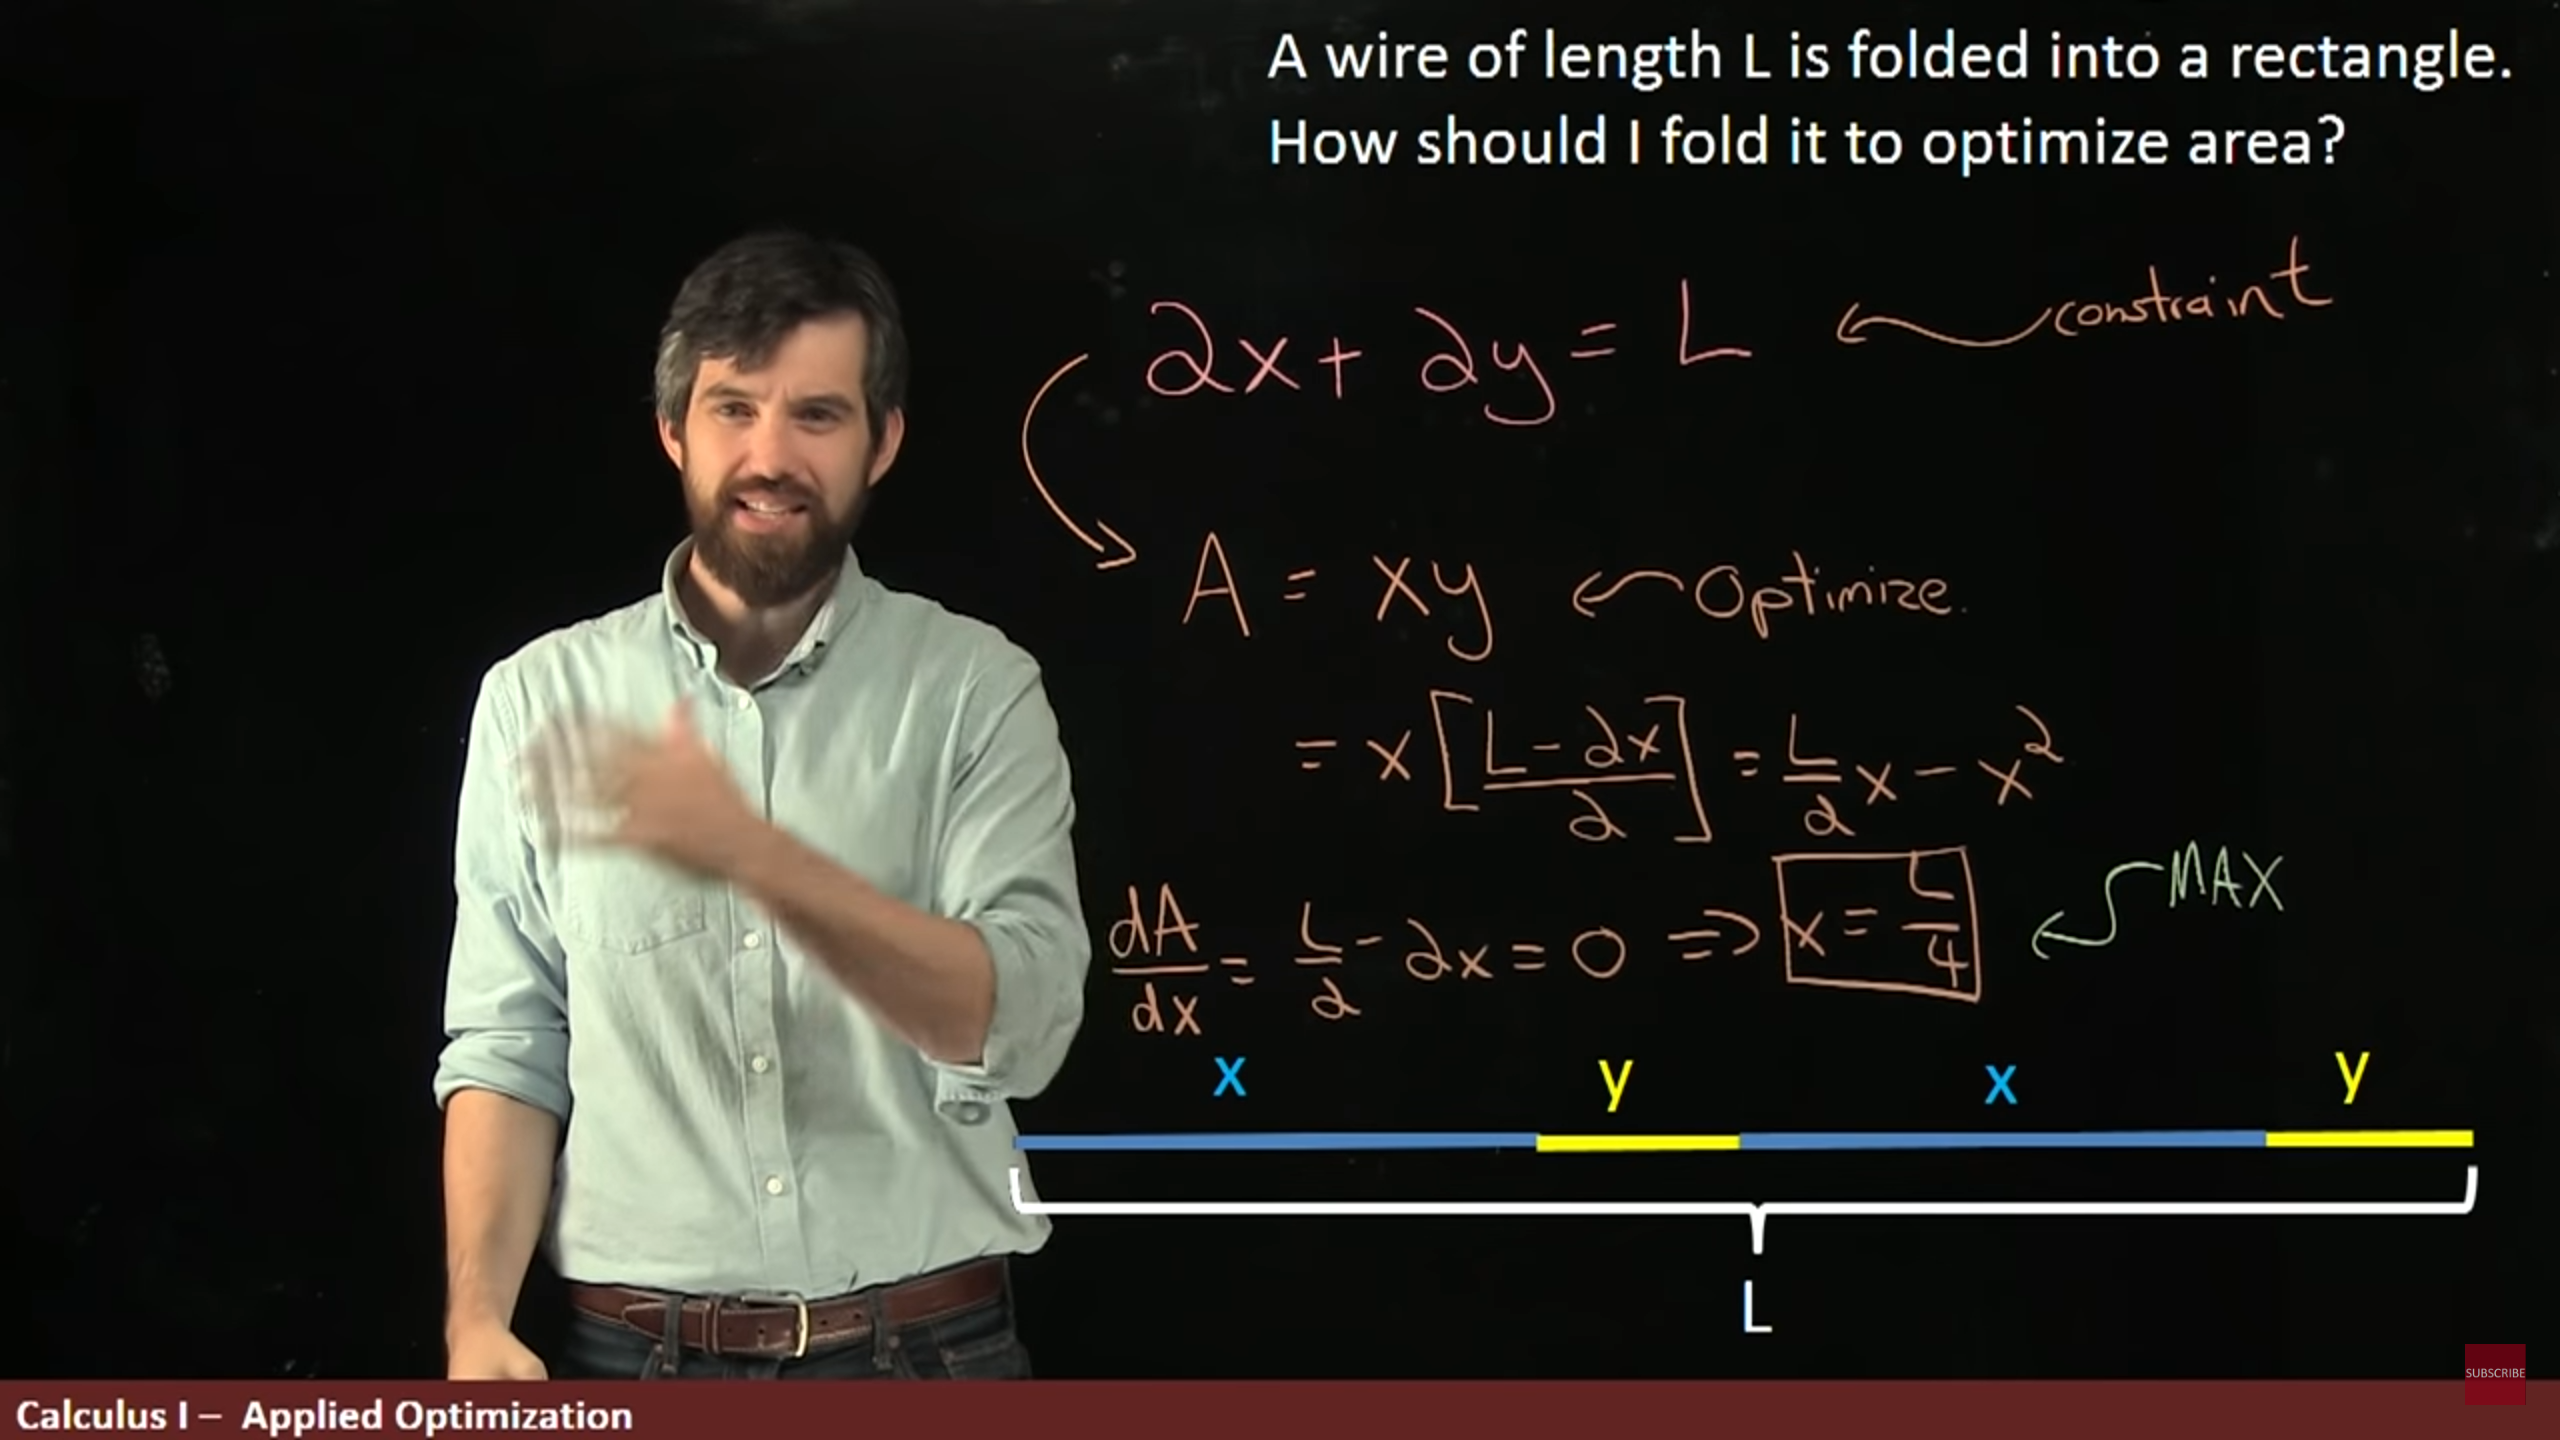 A wire of length L is folded into a rectangle.
How should I fold it to optimize area?
2x + 2y = L ← constraint
A = xy ← Optimize.
= x[(L - 2x)/2] = L/2 x - x²
dA/dx = L/2 - 2x = 0 ⇒ x = L/4 ← MAX
x y x y
L
SUBSCRIBE
Calculus I – Applied Optimization